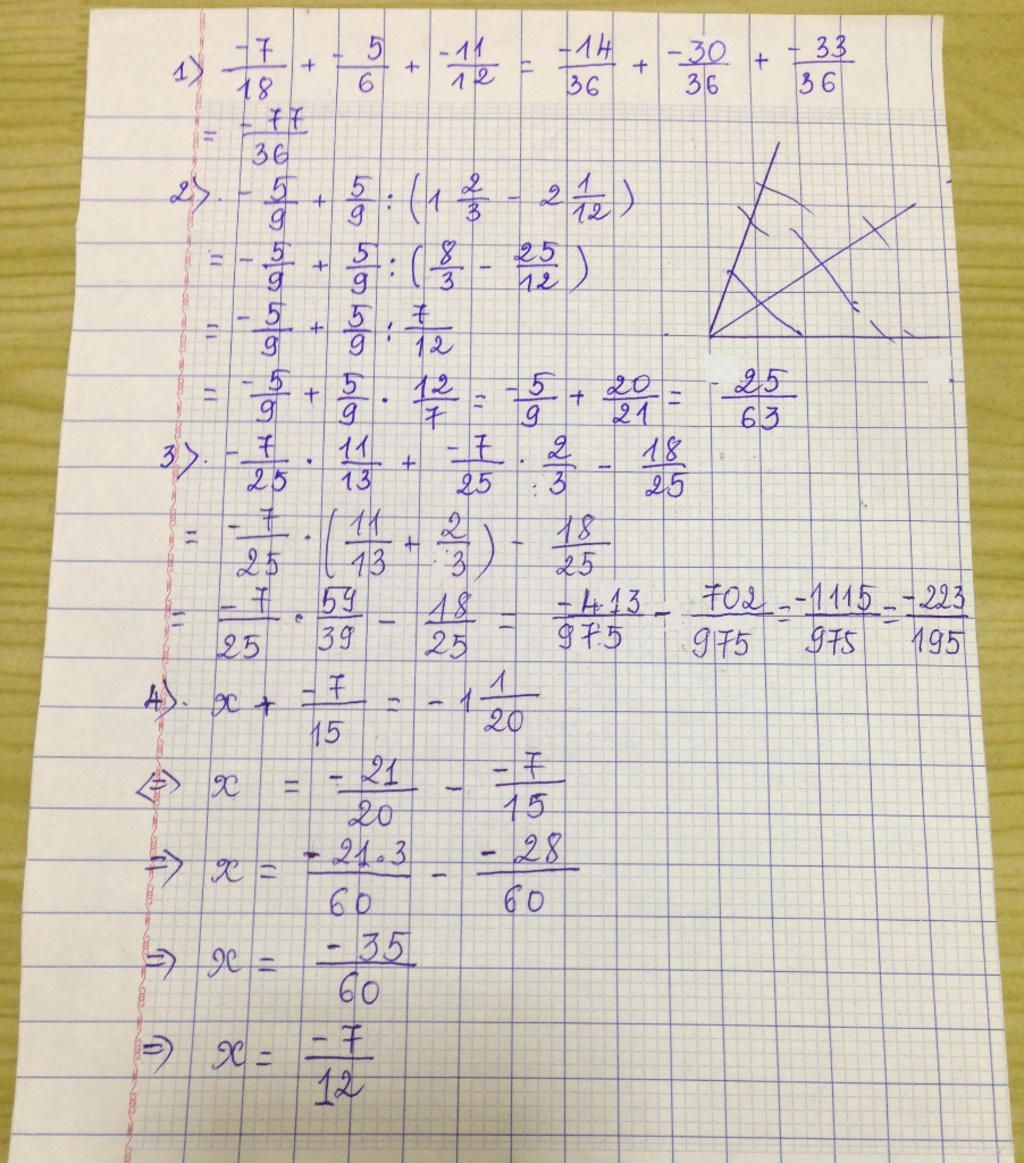 1) -7/18 + -5/6 + -11/12 = -14/36 + -30/36 + -33/36
= -77/36
2). -5/9 + 5/9 : (1 2/3 - 2 1/12)
= -5/9 + 5/9 : (8/3 - 25/12)
= -5/9 + 5/9 : 7/12
= -5/9 + 5/9 . 12/7 = -5/9 + 20/21 = -25/63
3). -7/25 . 11/13 + -7/25 . 2/3 - 18/25
= -7/25 . (11/13 + 2/3) - 18/25
= -7/25 . 59/39 - 18/25 = -413/975 - 702/975 = -1115/975 = -223/195
4). x + -7/15 = -1 1/20
<=> x = -21/20 - -7/15
=> x = -21.3/60 - -28/60
=> x = -35/60
=> x = -7/12